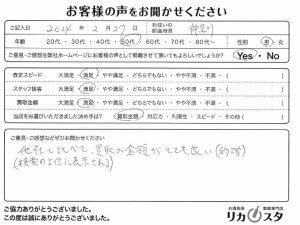 お客様の声をお聞かせください
ご記入日 2024年 2月 27日 お住いの都道府県 神奈川
年齢 20代・30代・40代・50代・60代・70代・80代〜 性別 男・女
ご意見・ご感想を弊社ホームページにお客様の声として掲載させて頂いてもよろしいでしょうか? Yes・No
査定スピード 大満足・満足・やや満足・どちらでもない・やや不満・不満・( )
スタッフ接客 大満足・満足・やや満足・どちらでもない・やや不満・不満・( )
買取金額 大満足・満足・やや満足・どちらでもない・やや不満・不満・( )
当店をお選びいただきました決め手は? 買取金額・対応力・利便性・スピード・その他( )
ご意見・ご感想などぜひお聞かせください
他社と比べて、買取の金額がとても良い
(検索の上位に表示される)
ご協力ありがとうございました。
この度は誠にありがとうございました。
お酒買取専門店
リカスタ